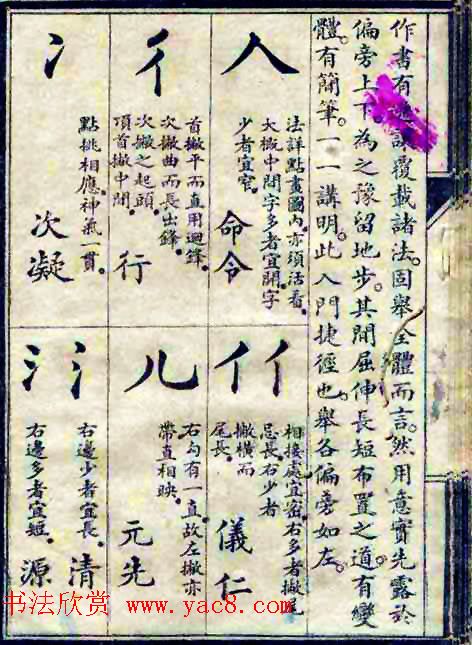 作書有讓覆載諸法。固舉全體而言。然用意實先露於
偏旁上下為之豫留地步。其間屈伸長短布置之道。有變
體。有簡筆。一一講明。此入門捷徑也。舉各偏旁如左。
人
法詳點畫圖內。亦須活看。
大撇中間字多者宜開。字
少者宜窄。
命令
彳
首撇平而直用迴鋒。
次撇曲而長出鋒。
次撇之起頭
頂首撇中間。
行
冫
點挑相應。神氣一貫。
次凝
亻亻
相接處宜密。右多者撇尾
忌長右少者
撇橫而
尾長。
儀仁
儿
右勾有一直。故左撇亦
帶直相映。
元先
氵氵
右邊少者宜長。
清
右邊多者宜短。
源
书法欣赏 www.yac8.com